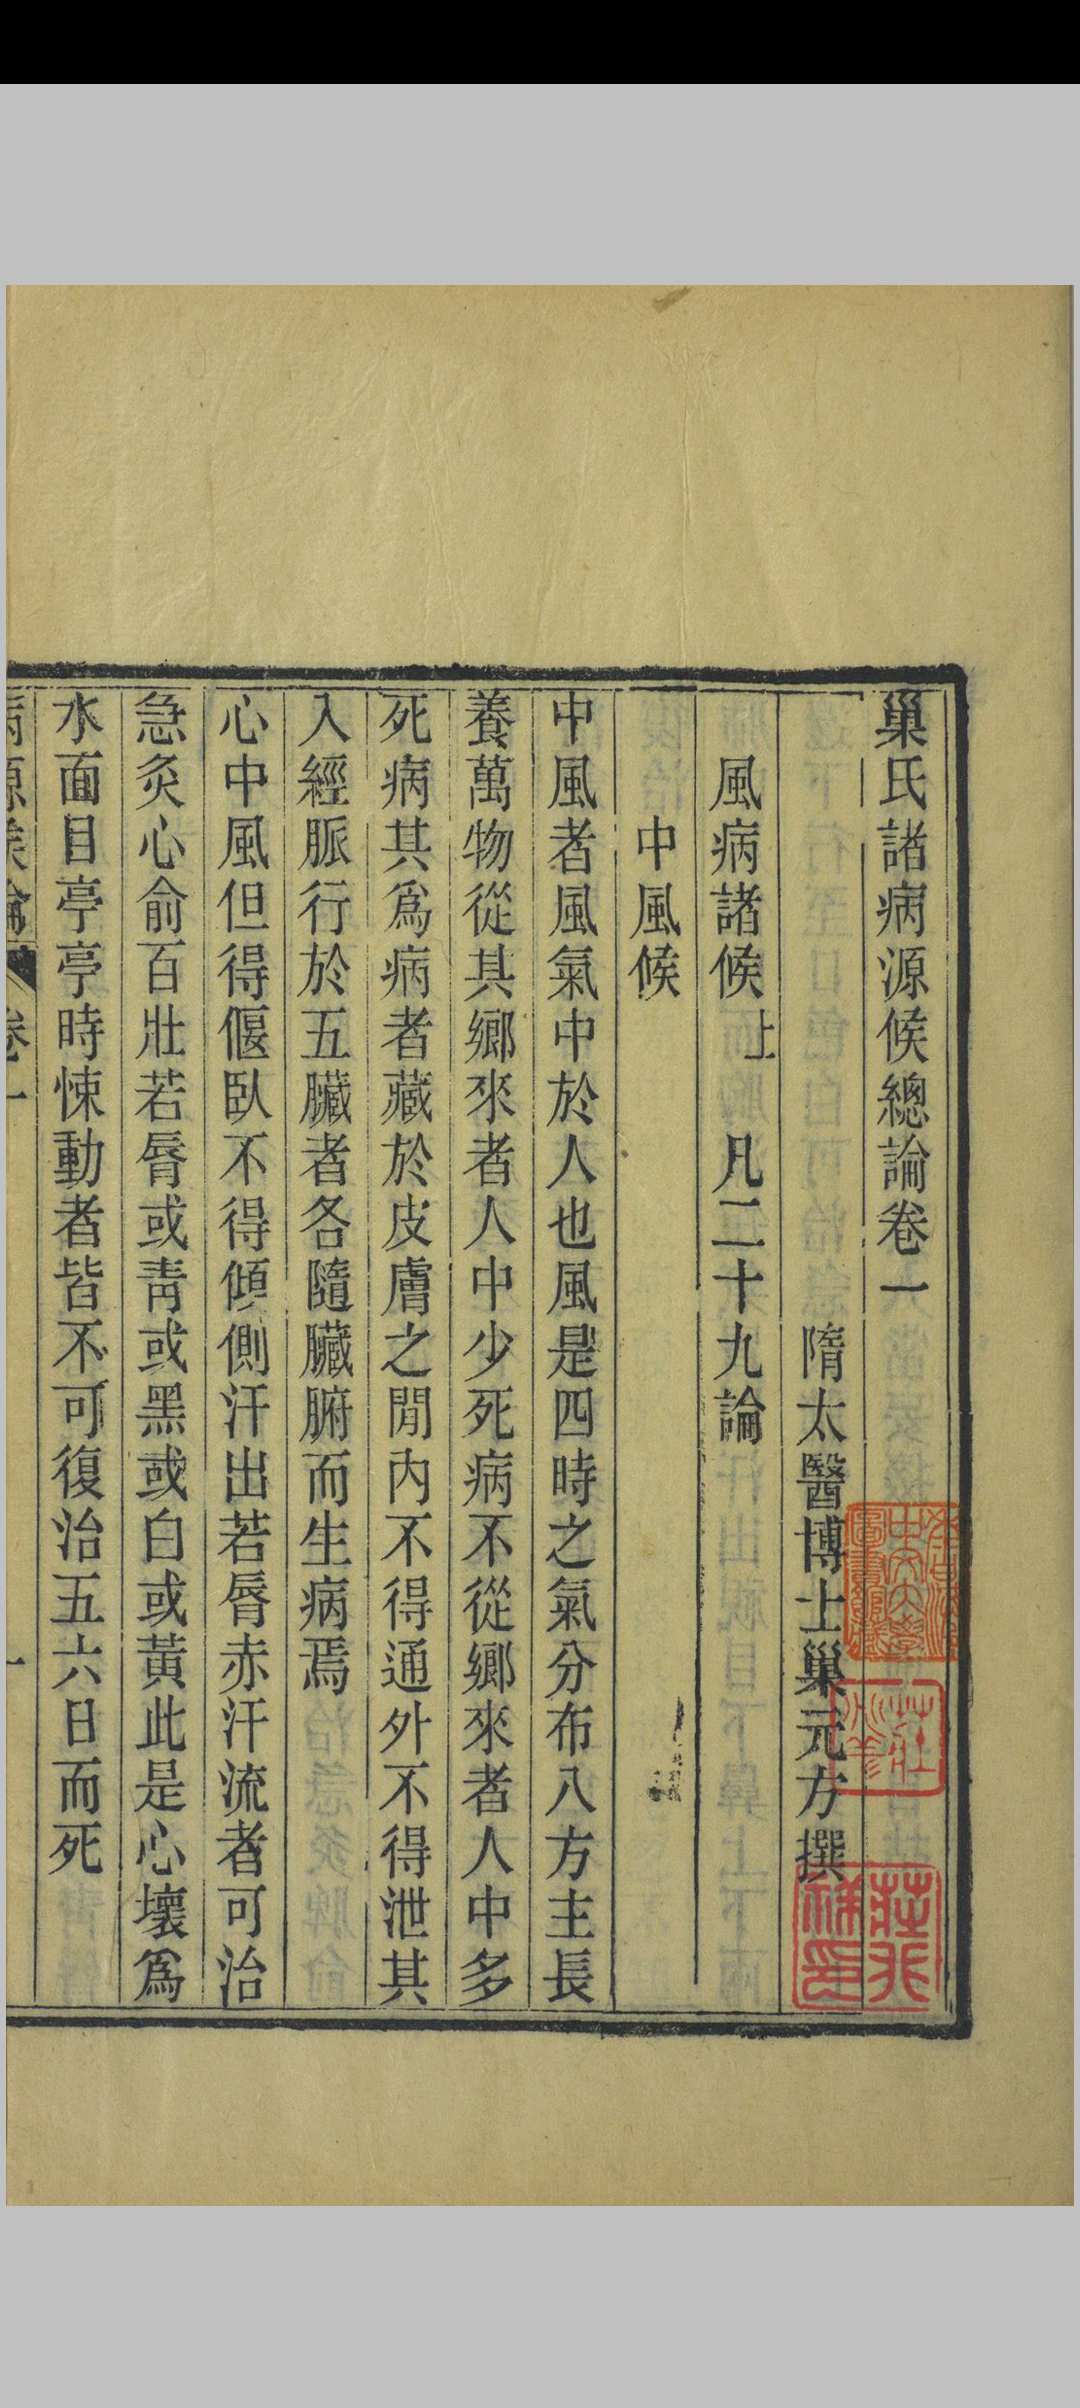 巢氏諸病源候總論卷一
隋太醫博士巢元方撰
風病諸候上 凡二十九論
中風候
中風者風氣中於人也風是四時之氣分布八方主長
養萬物從其鄉來者人中少死病不從鄉來者人中多
死病其爲病者藏於皮膚之閒內不得通外不得泄其
入經脈行於五臟者各隨臟腑而生病焉
心中風但得偃臥不得傾側汗出若脣赤汗流者可治
急灸心俞百壯若脣或靑或黑或白或黃此是心壞爲
水面目亭亭時悚動者皆不可復治五六日而死
病源候論 卷一 一